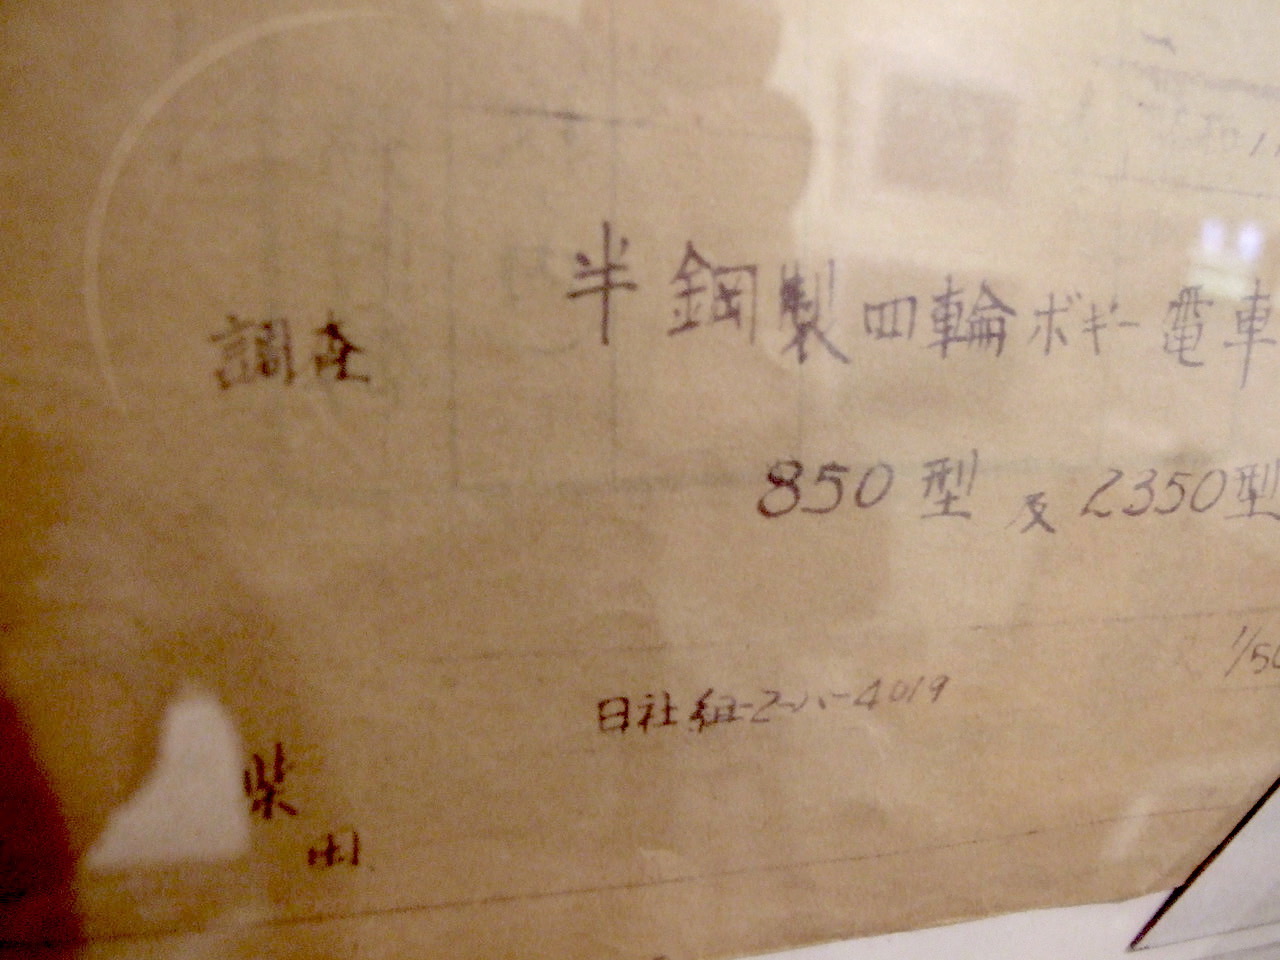 半鋼製四輪ボギー電車
調査
850型及2350型
1/50
日社組-2-ハ-4019
柴田